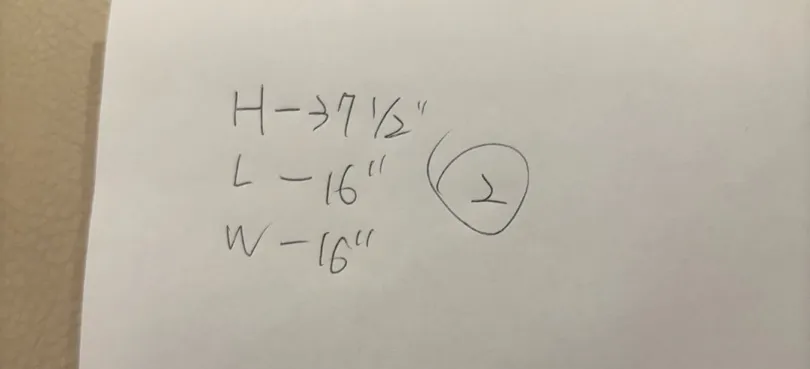 H - 37 1/2"
L - 16"
2
W - 16"